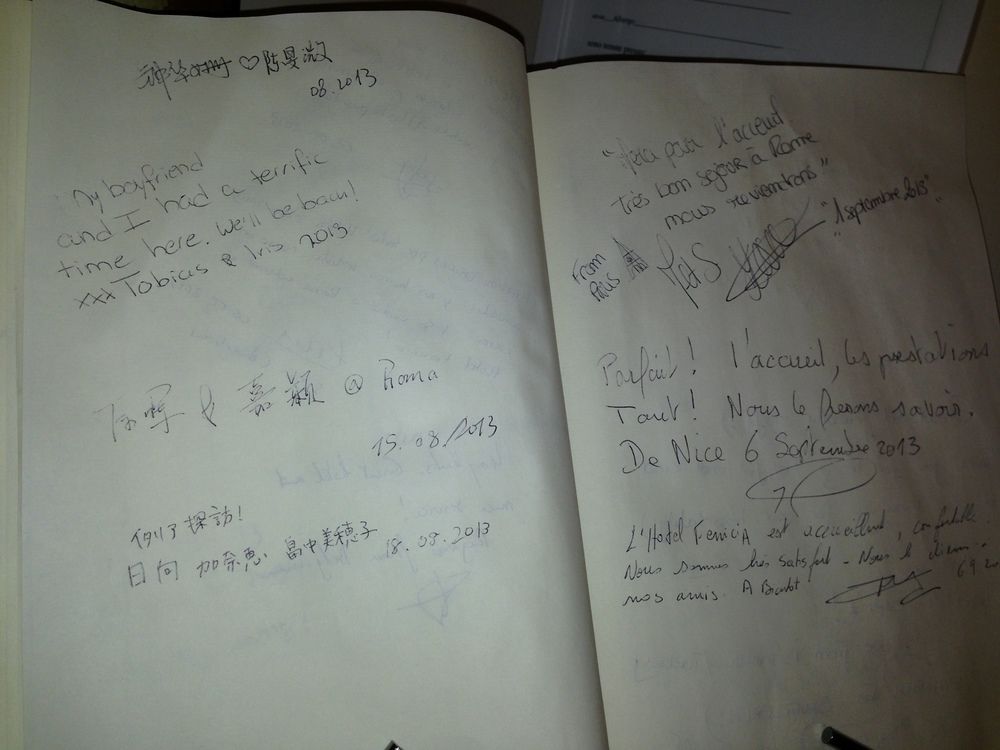 ♡陈曼
08.2013
My boyfriend
and I had a terrific
time here. We'll be back!
xxx Tobias & Iris 2013
& 嘉穎 @ Roma
15.08.2013
探訪!
日向 加奈恵、畠中美穂子 18.09.2013
pour l'acceuil
très bon sejour à Rome
nous reviendrons"
"1 septembre 2013"
From
Parfait! l'accueil, les prestations
Tout! Nous le ferons savoir.
De Nice 6 Septembre 2013
L'Hotel Fenicia est accueillant, confortable.
Nous sommes très satisfait - Nous le dirons
nos amis. A Bientot
6 9 20